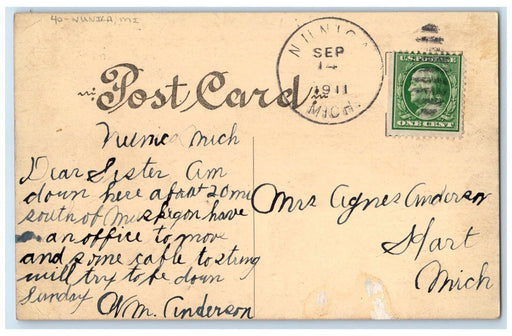 40-NUNICA, MI
NUNICA
SEP
14
1911
MICH.
U.S. POSTAGE
ONE CENT
Post Card
Nunica Mich
Dear Sister Am
down here about 20 mi
south of Muskegon have
an office to move
and some cable to string
will try to be down
Sunday
Wm. Anderson
Mrs Agnes Anderson
Hart
Mich